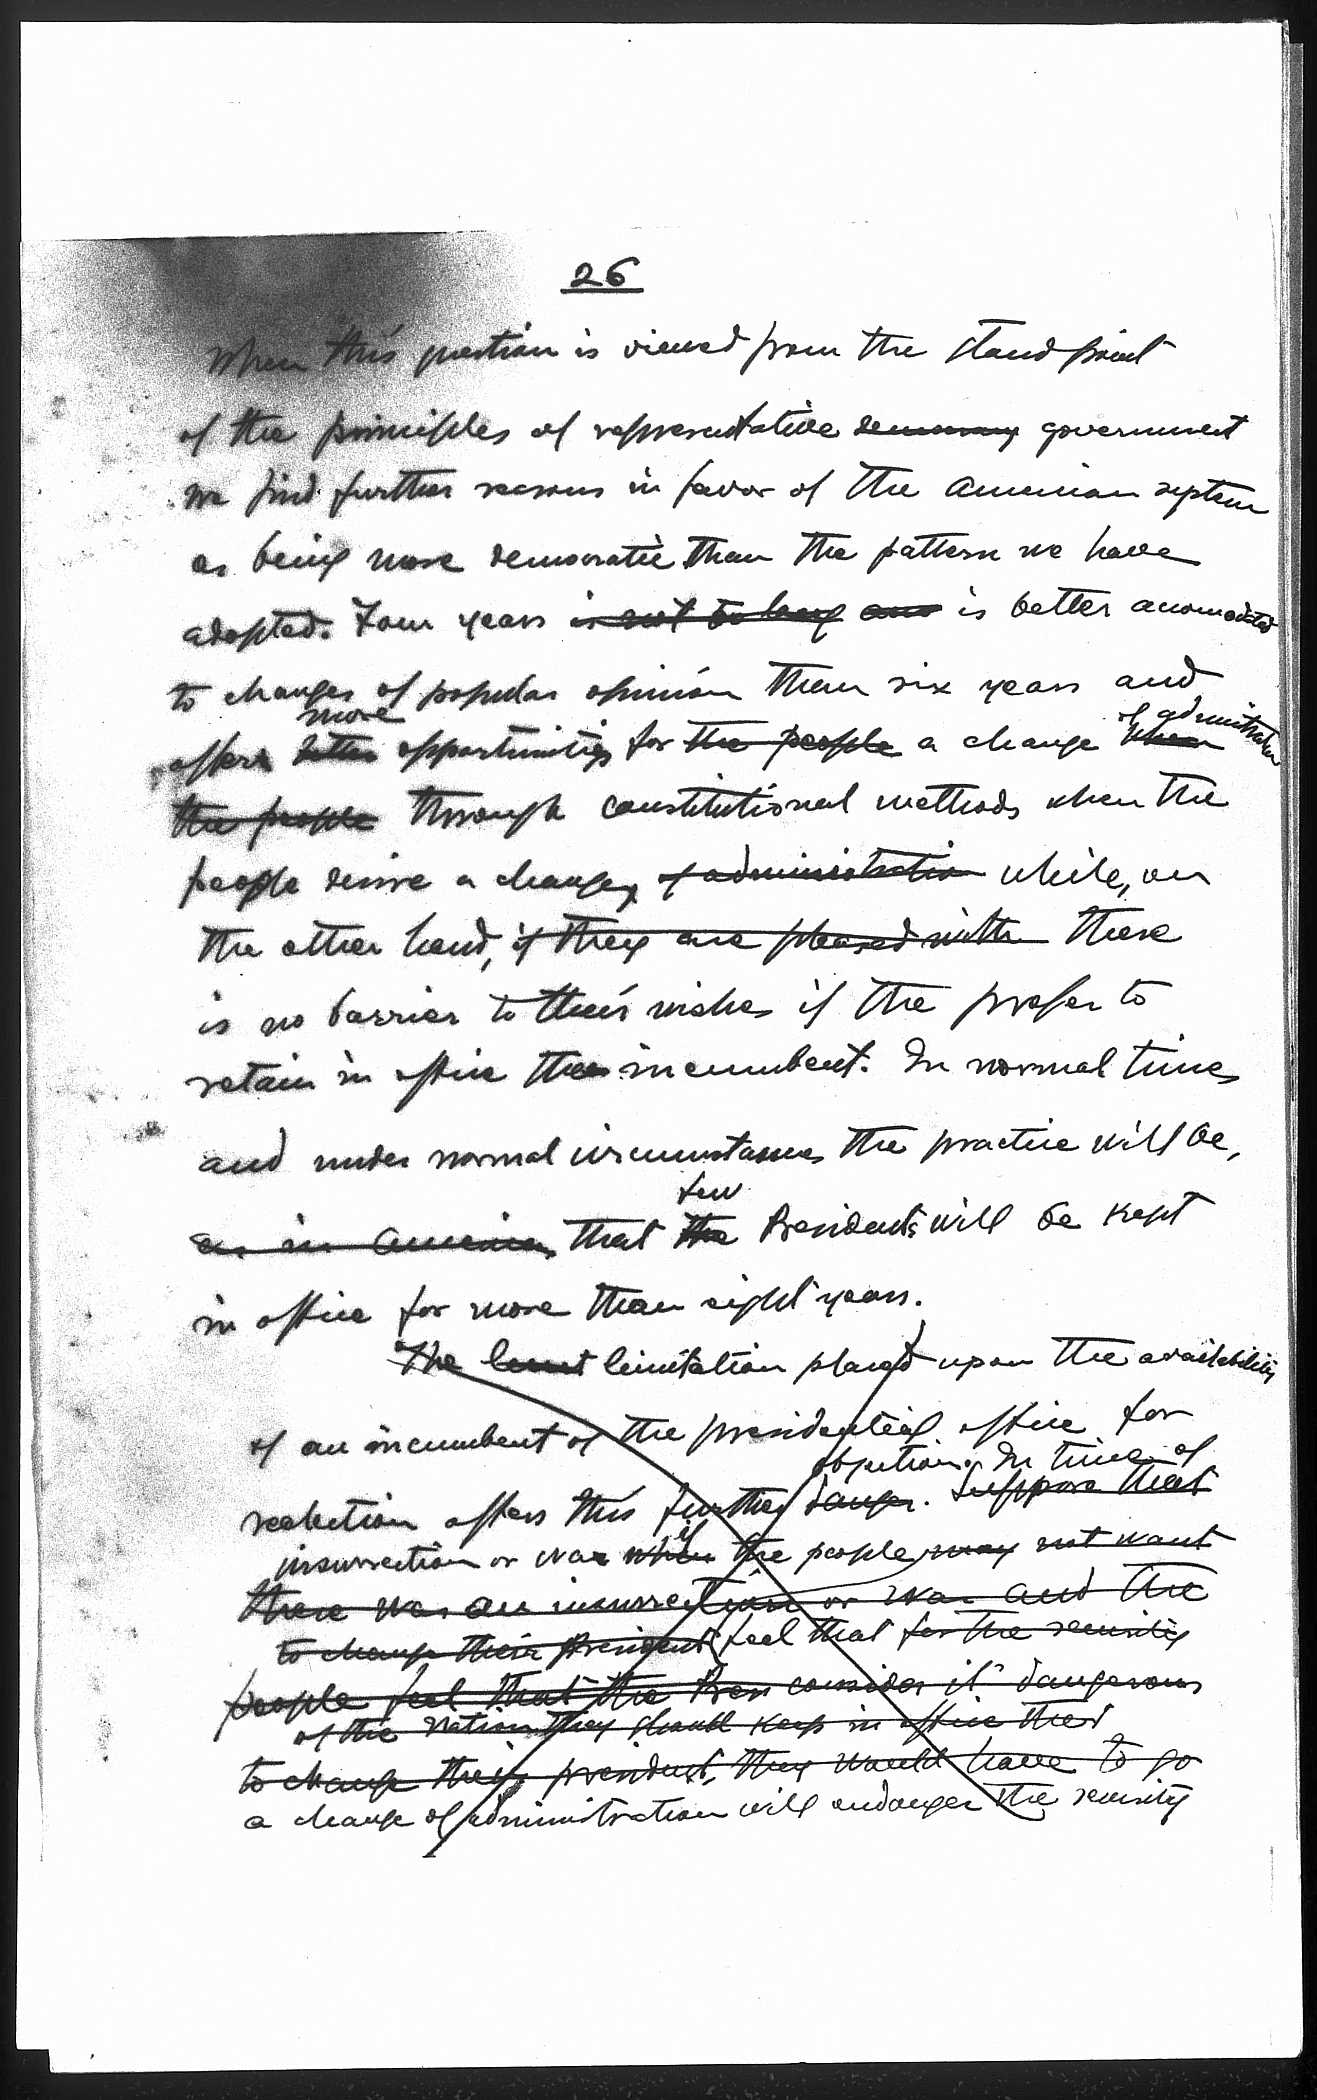 26
When this question is viewed from the stand point
of the principles of representative democracy government
we find further reasons in favor of the American system
as being more democratic than the pattern we have
adopted. Four years is not too long and is better accomodated
to changes of popular opinion than six years and
more of administration
offers better opportunities for the people a change when
the people through constitutional methods when the
people desire a change, of administration while, on
the other hand, if they are pleased with there
is no barrier to their wishes if the prefer to
retain in office the incumbent. In normal times
and under normal circumstances the practice will be,
few
as in America, that the Presidents will be kept
in office for more than eight years.
The limitation placed upon the availability
of an incumbent of the presidential office for
objection. In time of
reelection offers this further danger. Suppose that
insurrection or war when if the people may not want
there was an insurrection or war and the
to change their President feel that for the security
people feel that the Pres consider it dangerous
of the nation they should keep in office their
to change their president, they would have to go
a change of administration will endanger the security